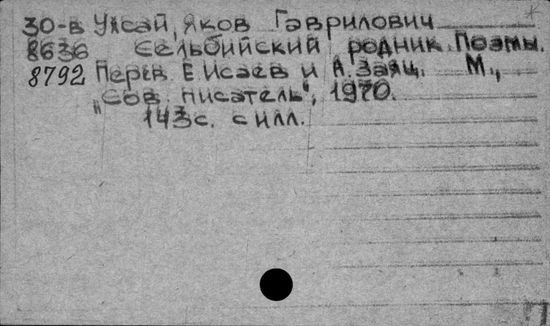 30-в Ухсай, Яков Гаврилович
8636 Сельбийский родник. Поэмы.
8792 Перев. Е. Исаев и А. Заяц. М.,
"Сов. писатель", 1970.
143 с. с илл.